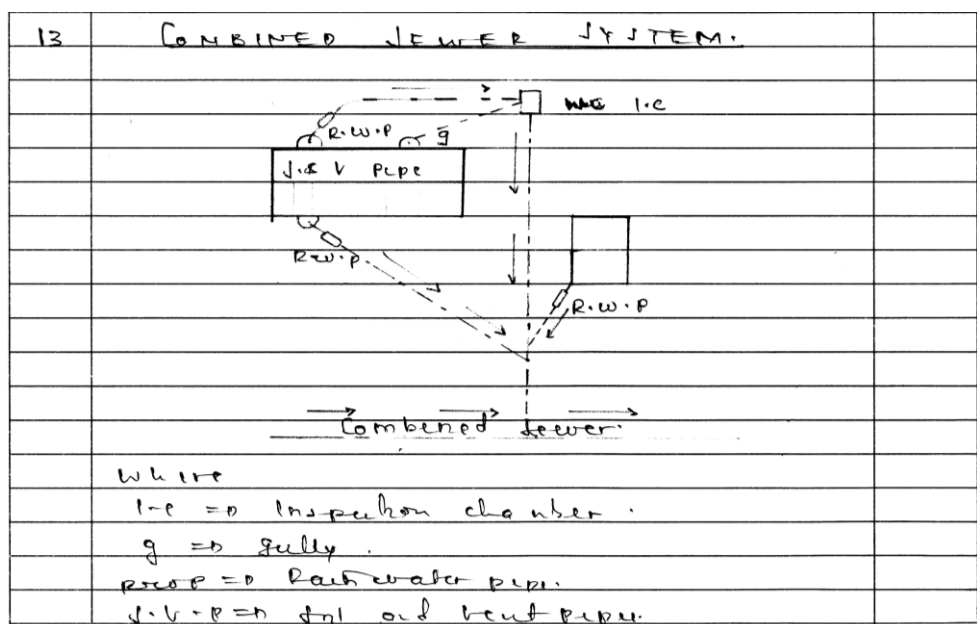 13 COMBINED SEWER SYSTEM.
I.C
R.W.P g
S.& V pipe
R.W.P.
R.W.P
Combined Sewer.
where
I.C => Inspection chamber.
g => gully.
=> Rain water pipe.
S.V.P => Soil and vent pipe.